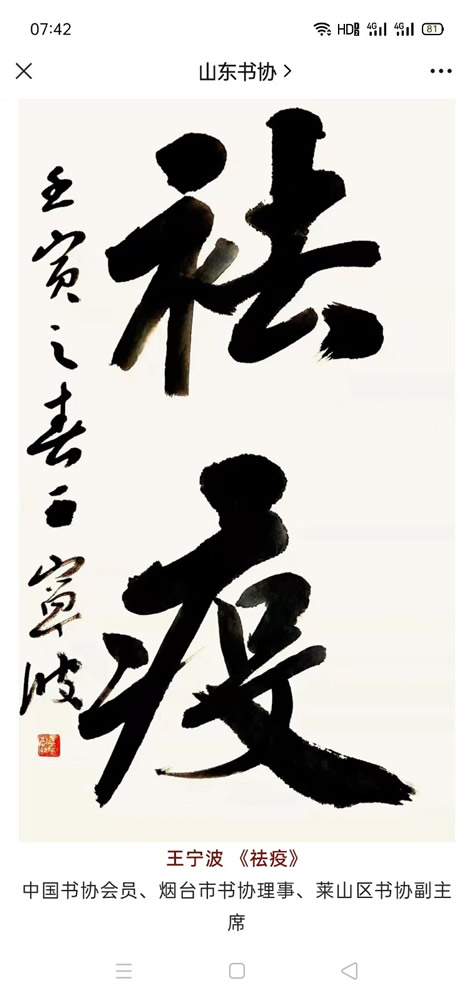 07:42
HD 4G 4G 81
山东书协
祛疫
壬寅之春王宁波
王宁波 《祛疫》
中国书协会员、烟台市书协理事、莱山区书协副主
席